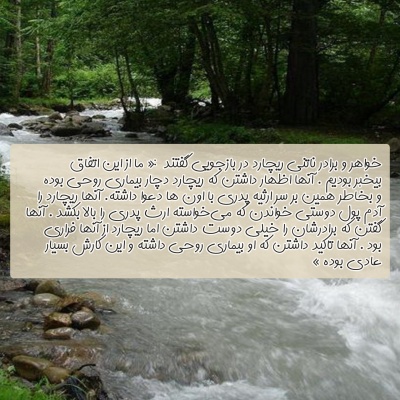 خواهر و برادر ناتنی ریچارد در بازجویی گفتند :« ما از این اتفاق
بیخبر بودیم . آنها اظهار داشتن که ریچارد دچار بیماری روحی بوده
و بخاطر همین بر سر ارثیه پدری با اون ها دعوا داشته. آنها ریچارد را
آدم پول دوستی خواندن که می‌خواسته ارث پدری را بالا بکشد . آنها
گفتن که برادرشان را خیلی دوست داشتن اما ریچارد از آنها فراری
بود . آنها تاکید داشتن که او بیماری روحی داشته و این کارش بسیار
عادی بوده »